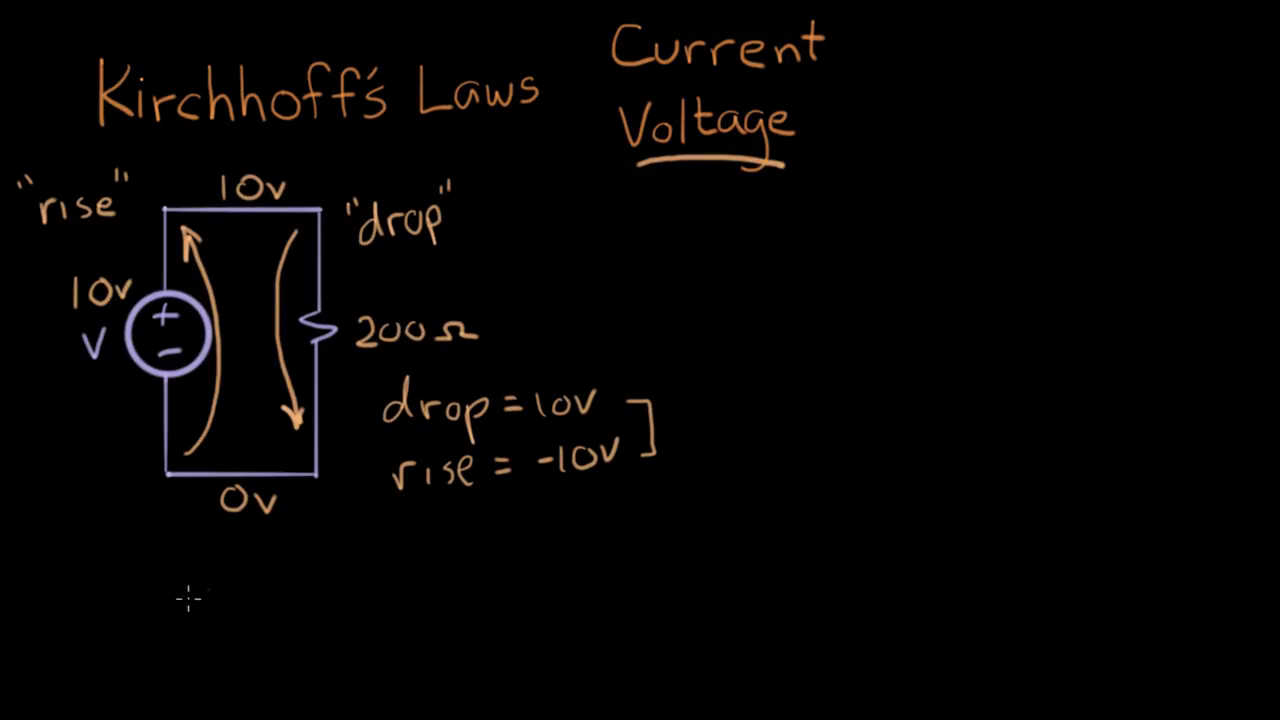 Kirchhoff's Laws
Current
Voltage
"rise"
10v
"drop"
10v
V
+
-
200Ω
drop = 10v
rise = -10v
0v